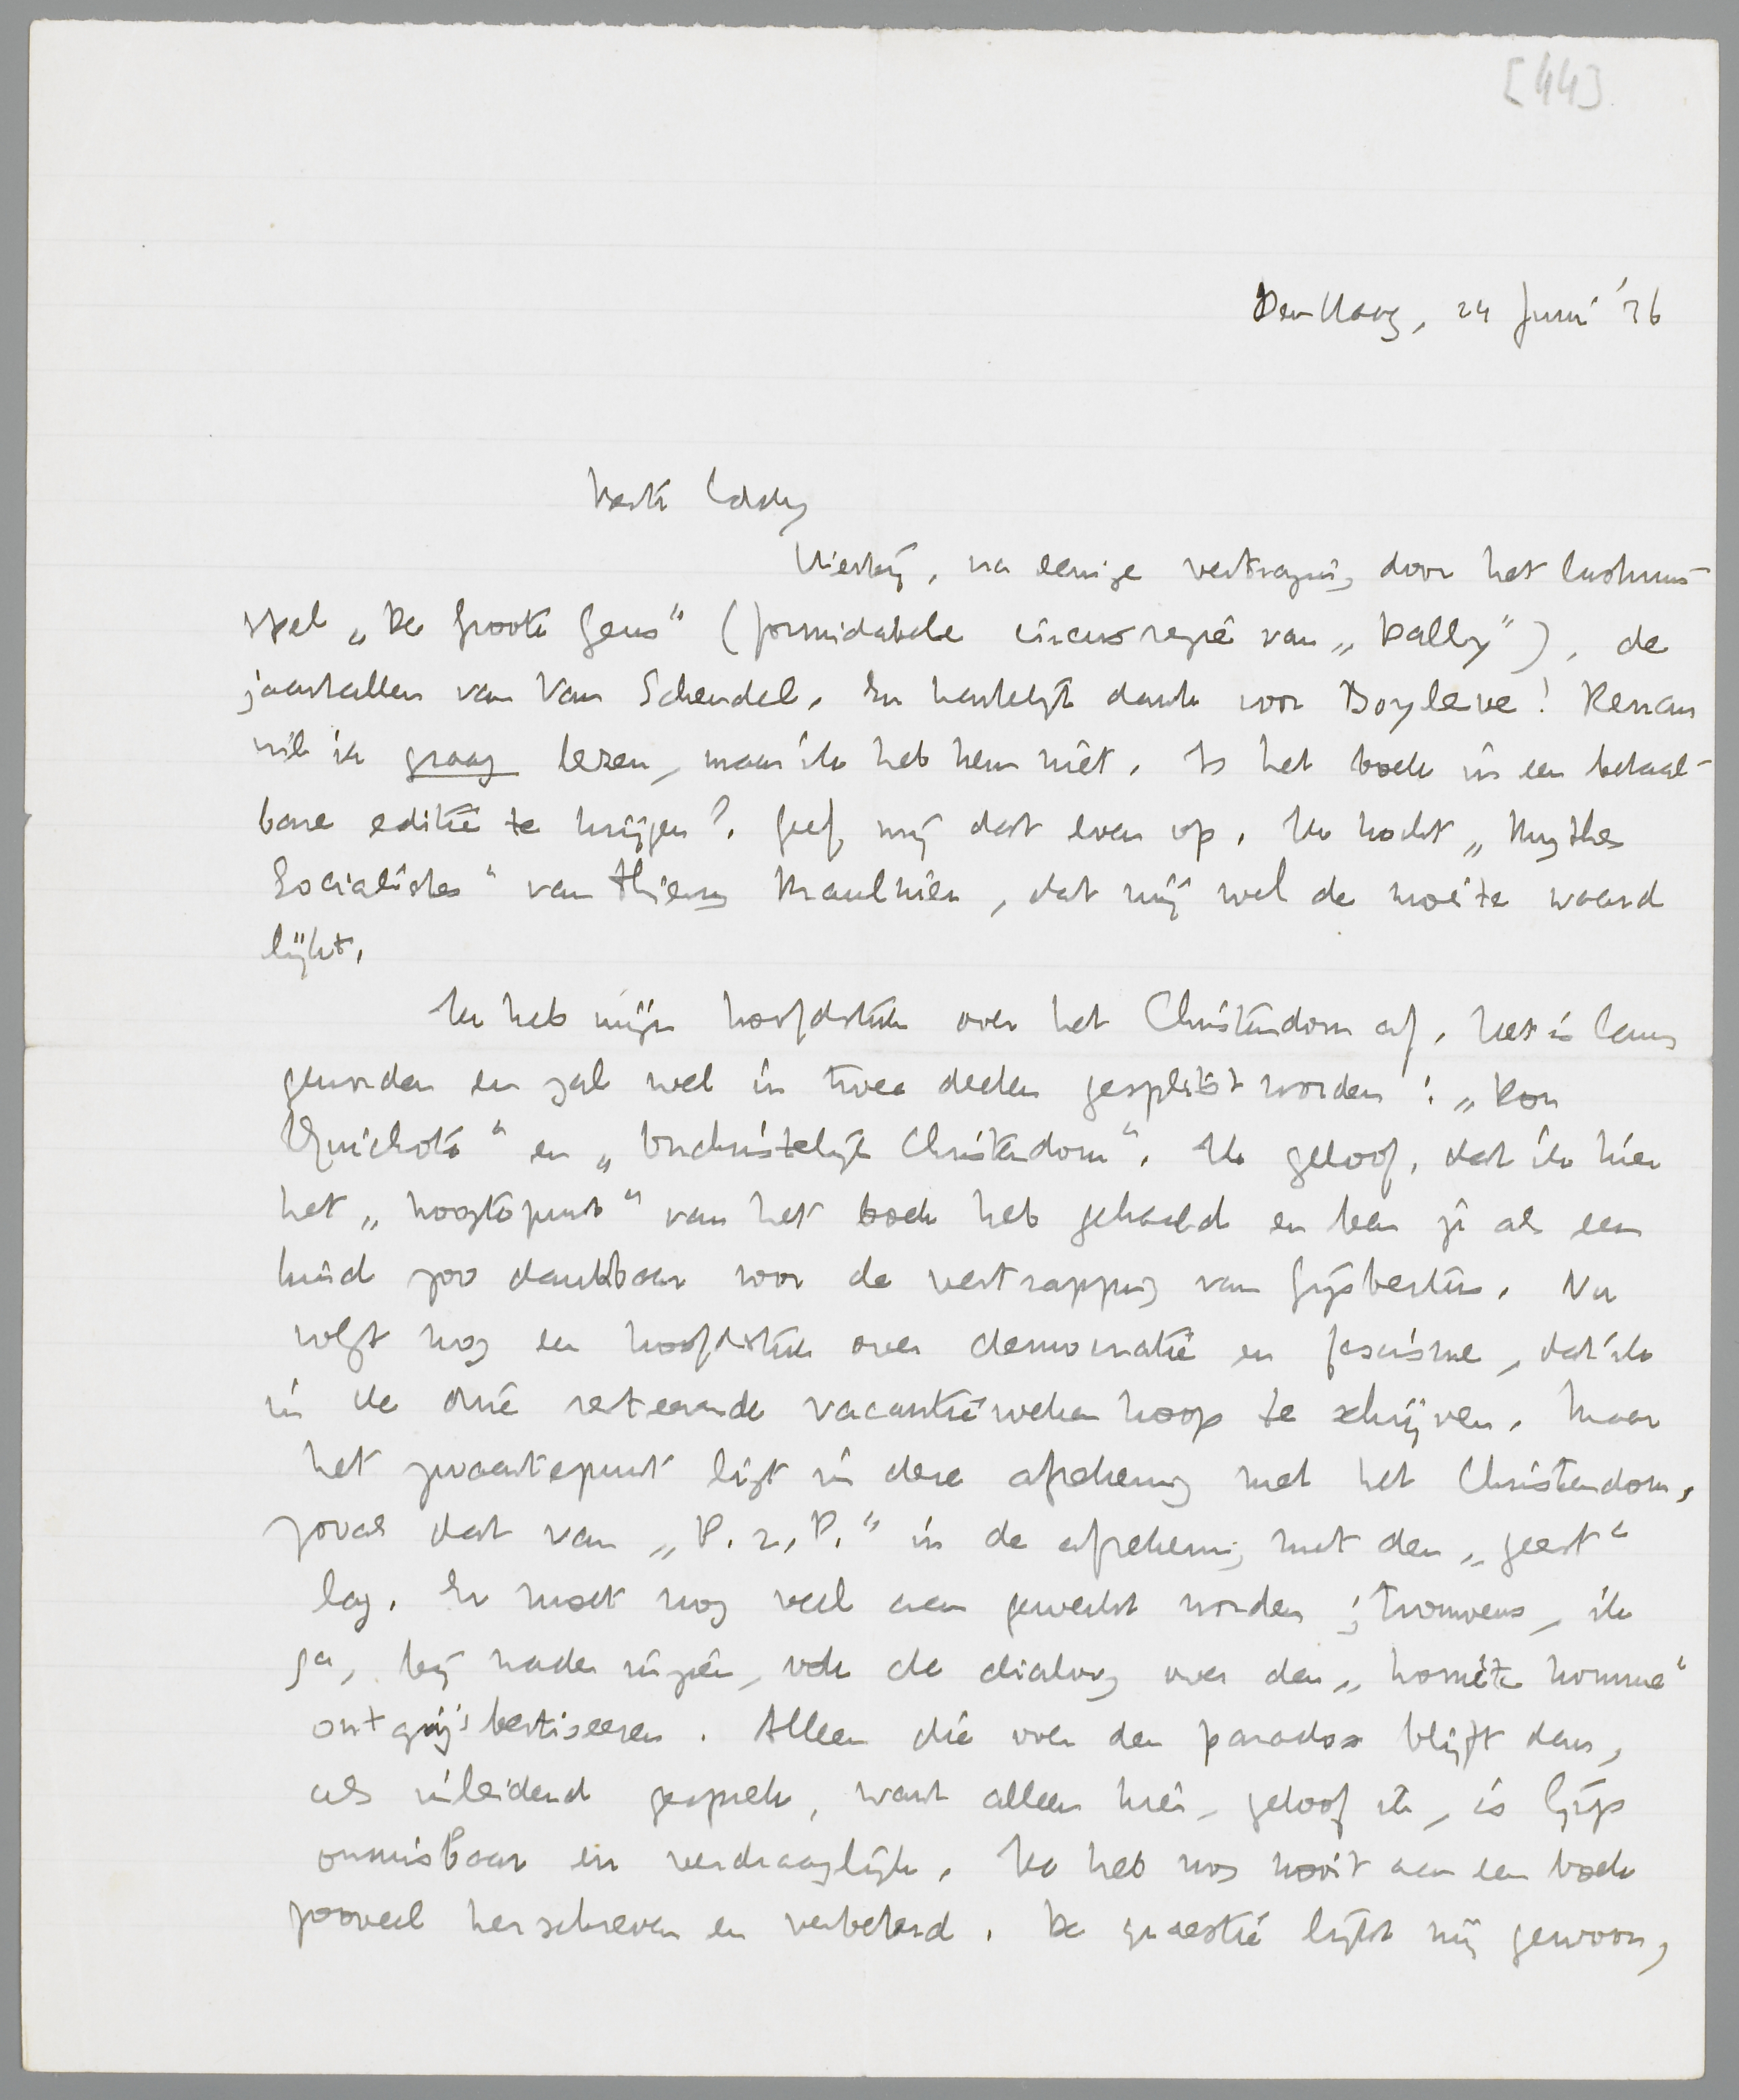 [44]
Den Haag, 24 Juni '36
Beste Eddy
Hierbij, na eenige vertraging door het lustrum-
spel „De Groote Geus" (formidabele circusregie van „Dally"), de
jaartallen van Van Schendel. En hartelijk dank voor Boyleve! Renan
wil ik graag lezen, maar ik heb hem niet. Is het boek in een betaal-
bare editie te krijgen? Geef mij dat even op. Ik kocht „Mythes
Socialistes" van Thierry Maulnier, dat mij wel de moeite waard
lijkt.
Ik heb mijn hoofdstuk over het Christendom af. Het is lang
geworden en zal wel in twee deelen gesplitst worden: „Don
Quichote" en „Onchristelijk Christendom". Ik geloof, dat ik hier
het „hoogtepunt" van het boek heb gehaald en ben je als een
kind zoo dankbaar voor de vertrapping van Gijsbertus. Nu
volgt nog een hoofdstuk over democratie en fascisme, dat ik
in de drie resteerende vacantieweken hoop te schrijven. Maar
het zwaartepunt ligt in deze afrekening met het Christendom,
zooals dat van „P.z.P." in de afrekening met den „geest"
lag. Er moet nog veel aan gewerkt worden; trouwens, ik
ga, bij nader inzien, ook de dialoog over den „honnête homme"
ontgijsbertiseeren. Alleen die over den paradox blijft dan,
als inleidend gesprek, want alleen hier, geloof ik, is Gijs
onmisbaar en verdraaglijk. Ik heb nog nooit aan een boek
zooveel herschreven en verbeterd. De quaestie lijkt mij gewoon,